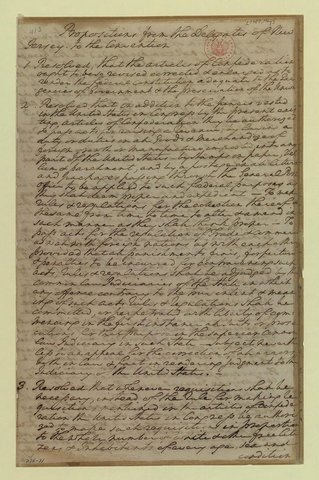 Propositions from the Delegates of New
Jersey. to the Convention
1. Resolved, that the articles of Confederation
ought to be revised corrected & enlarged so as to
render the federal constitution adequate to the Exi-
gencies of Government & the preservation of the Union
2. Resolved that in addition to the powers vested
in the United States in Congress by the present exis-
ting articles of Confederation, they be authorized
to pass acts for raising a revenue, by levying a
duty or duties on all Goods or Merchandizes of
foreign growth or manufacture imported into any
part of the United States, by Stamps on paper Vel-
lum or parchment, and by a postage on all letters
and packages passing through the General Post
Office, to be applied to such federal purposes as
they shall deem proper and expedient; To make
rules & regulations for the collection thereof
the same from time to time to alter & amend in
such manner as they shall think proper. To
pass acts for the regulation of trade & commerce
as well with foreign nations as with each other
provided that all punishments fines, forfeitures
& penalties to be incurred by contravening such
acts rules & regulations shall be adjudged by the
common law Judiciaries of the State in which
any offence contrary to the true intent & mean-
ing of such acts rules & regulations shall be
committed or perpetrated with liberty of com-
mencing in the first instance all suits or prose-
cutions for that purpose in the superior common
law Judiciary in such State, subject neverthe-
less to an appeal for the correction of all errors
both in law & fact in rendering Judgment to the
Judiciary of the United States.
3. Resolved that whenever requisitions shall be
necessary, instead of the rule for making re-
quisitions mentioned in the articles of Confede-
ration the United States in Congress be authori-
zed to make such requisitions in proportion
to the whole number of white & other free citi-
zens & Inhabitants of every age Sex and
condition